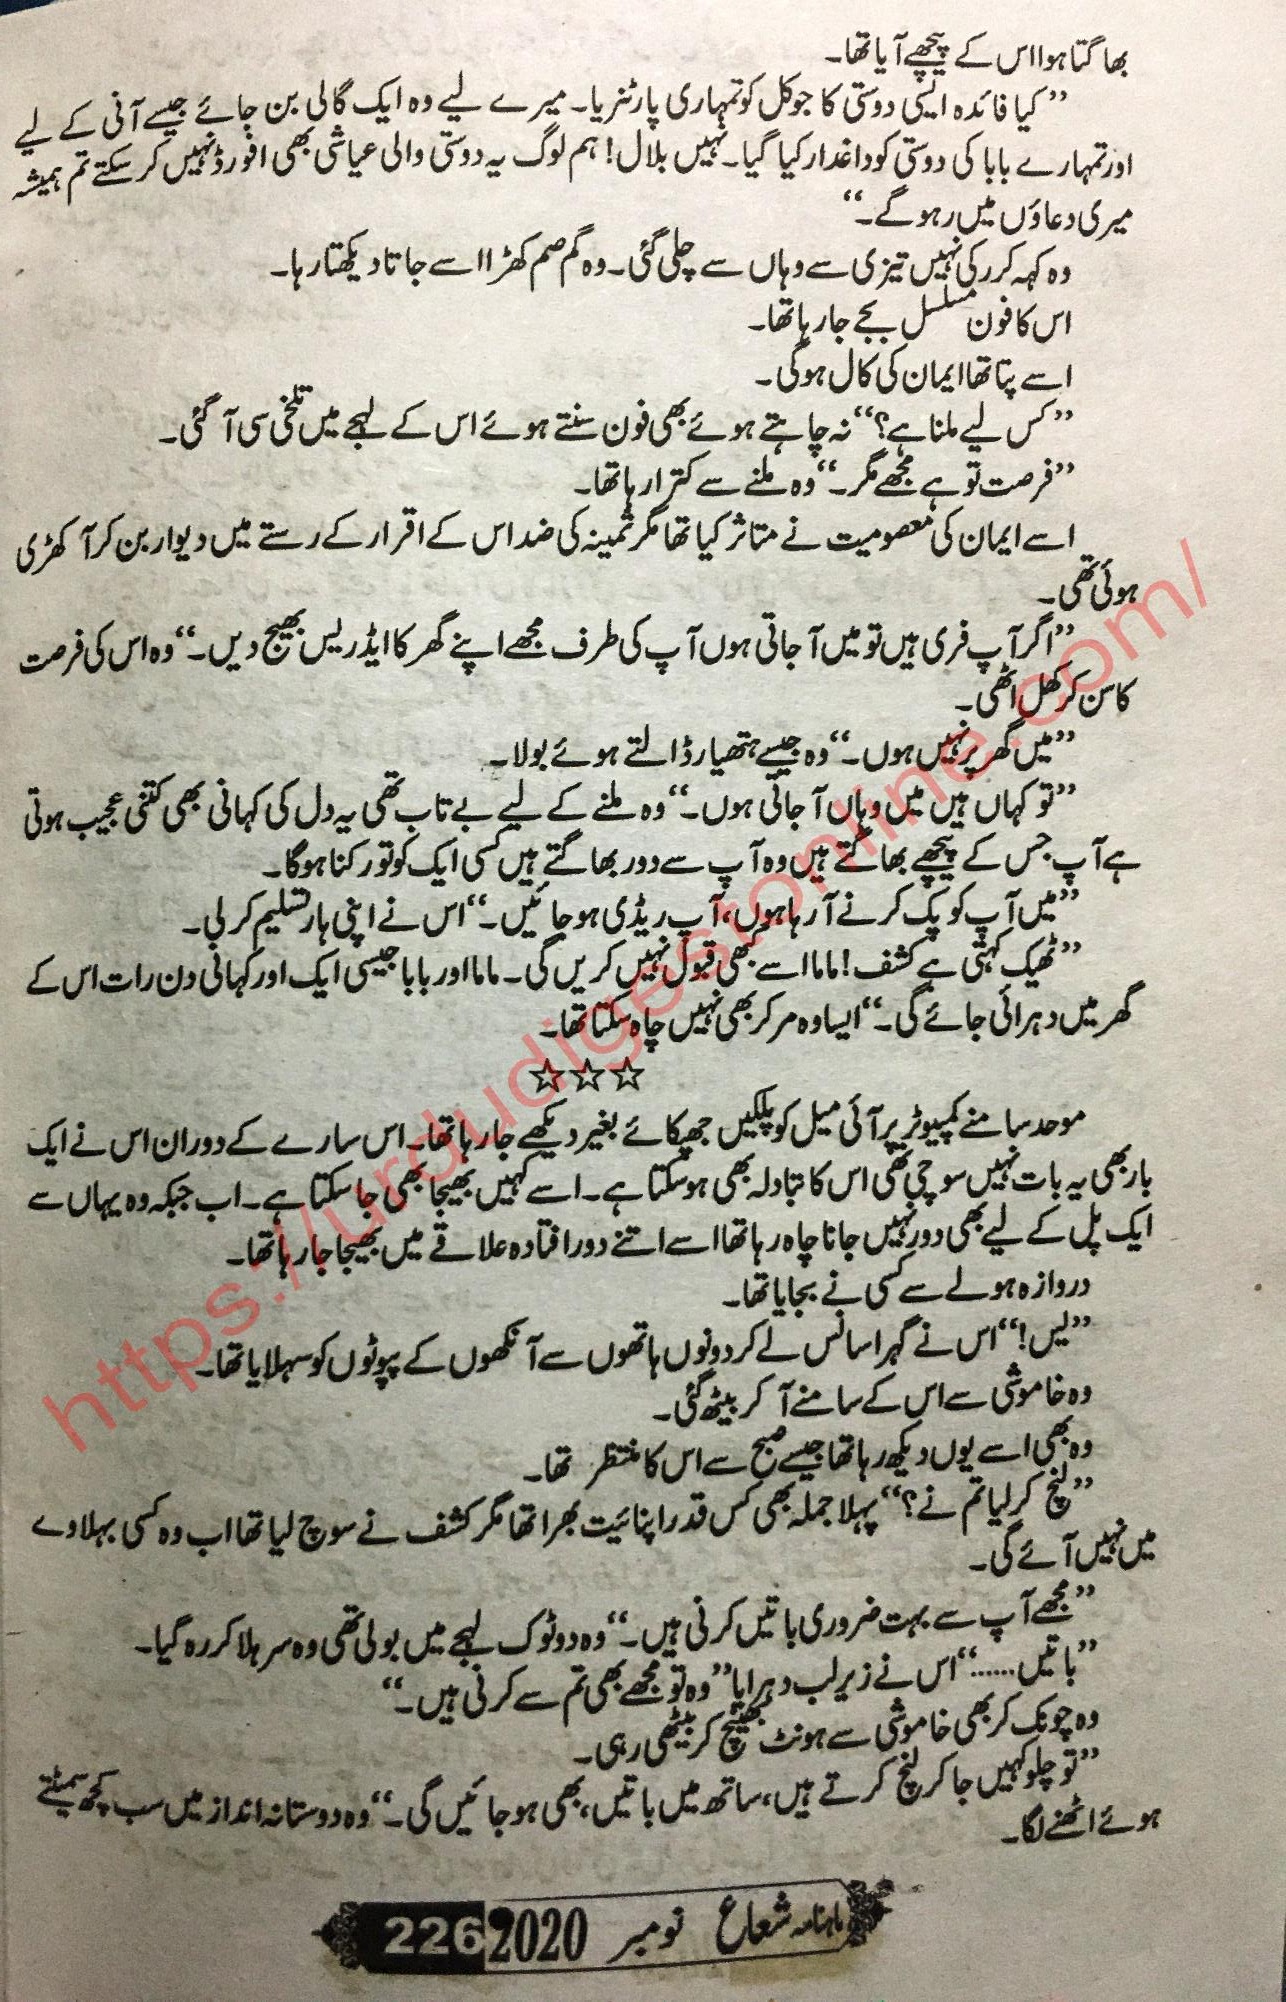 بھاگتا ہوا اس کے پیچھے آیا تھا۔
”کیا فائدہ ایسی دوستی کا جو کل کو تمہاری پارٹنر یا۔ میرے لیے وہ ایک گالی بن جائے جیسے آنی کے لیے
اور تمہارے بابا کی دوستی کو داغدار کیا گیا۔ نہیں بلال! ہم لوگ یہ دوستی والی عیاشی بھی افورڈ نہیں کر سکتے تم ہمیشہ
میری دعاؤں میں رہو گے۔“
وہ کہہ کر رکی نہیں تیزی سے وہاں سے چلی گئی۔ وہ گم صم کھڑا اسے جاتا دیکھتا رہا۔
اس کا فون مسلسل بجے جا رہا تھا۔
اسے پتا تھا ایمان کی کال ہوگی۔
”کس لیے ملنا ہے؟“ نہ چاہتے ہوئے بھی فون سنتے ہوئے اس کے لہجے میں تلخی سی آ گئی۔
”فرصت تو ہے مجھے مگر۔“ وہ ملنے سے کترا رہا تھا۔
اسے ایمان کی معصومیت نے متاثر کیا تھا مگر ثمینہ کی ضد اس کے اقرار کے رستے میں دیوار بن کر آ کھڑی
ہوئی تھی۔
”اگر آپ فری ہیں تو میں آ جاتی ہوں آپ کی طرف مجھے اپنے گھر کا ایڈریس بھیج دیں۔“ وہ اس کی فرصت
کا سن کر کھل اٹھی۔
”میں گھر پر نہیں ہوں۔“ وہ جیسے ہتھیار ڈالتے ہوئے بولا۔
”تو کہاں ہیں میں وہاں آ جاتی ہوں۔“ وہ ملنے کے لیے بے تاب تھی یہ دل کی کہانی بھی کتنی عجیب ہوتی
ہے آپ جس کے پیچھے بھاگتے ہیں وہ آپ سے دور بھاگتے ہیں کسی ایک کو تو رکنا ہوگا۔
”میں آپ کو پک کرنے آ رہا ہوں، آپ ریڈی ہو جائیں۔“ اس نے اپنی ہار تسلیم کر لی۔
”ٹھیک کہتی ہے کشف! ماما اسے کبھی قبول نہیں کریں گی۔ ماما اور بابا جیسی ایک اور کہانی دن رات اس کے
گھر میں دہرائی جائے گی۔“ ایسا وہ مر کر بھی نہیں چاہ سکتا تھا۔
☆☆☆
موحد سامنے کمپیوٹر پر آئی میل کو پلکیں جھپکائے بغیر دیکھے جا رہا تھا۔ اس سارے کے دوران اس نے ایک
بار بھی یہ بات نہیں سوچی تھی اس کا تبادلہ بھی ہو سکتا ہے۔ اسے کہیں بھیجا بھی جا سکتا ہے۔ اب جبکہ وہ یہاں سے
ایک پل کے لیے بھی دور نہیں جانا چاہ رہا تھا اسے اتنے دور افتادہ علاقے میں بھیجا جا رہا تھا۔
دروازہ ہولے سے کسی نے بجایا تھا۔
”یس!“ اس نے گہرا سانس لے کر دونوں ہاتھوں سے آنکھوں کے پپوٹوں کو سہلایا تھا۔
وہ خاموشی سے اس کے سامنے آ کر بیٹھ گئی۔
وہ بھی اسے یوں دیکھ رہا تھا جیسے صبح سے اس کا منتظر تھا۔
”لنچ کر لیا تم نے؟“ پہلا جملہ بھی کس قدر اپنائیت بھرا تھا مگر کشف نے سوچ لیا تھا اب وہ کسی بہلاوے
میں نہیں آئے گی۔
”مجھے آپ سے بہت ضروری باتیں کرنی ہیں۔“ وہ دو ٹوک لہجے میں بولی تھی وہ سر ہلا کر رہ گیا۔
”باتیں......“ اس نے زیر لب دہرایا ”وہ تو مجھے بھی تم سے کرنی ہیں۔“
وہ چونک کر بھی خاموشی سے ہونٹ بھینچ کر بیٹھی رہی۔
”تو چلو کہیں جا کر لنچ کرتے ہیں، ساتھ میں باتیں، بھی ہو جائیں گی۔“ وہ دوستانہ انداز میں سب کچھ سمیٹتے
ہوئے اٹھنے لگا۔
ماہنامہ شعاع نومبر 2020 226
https://urdudigestonline.com/